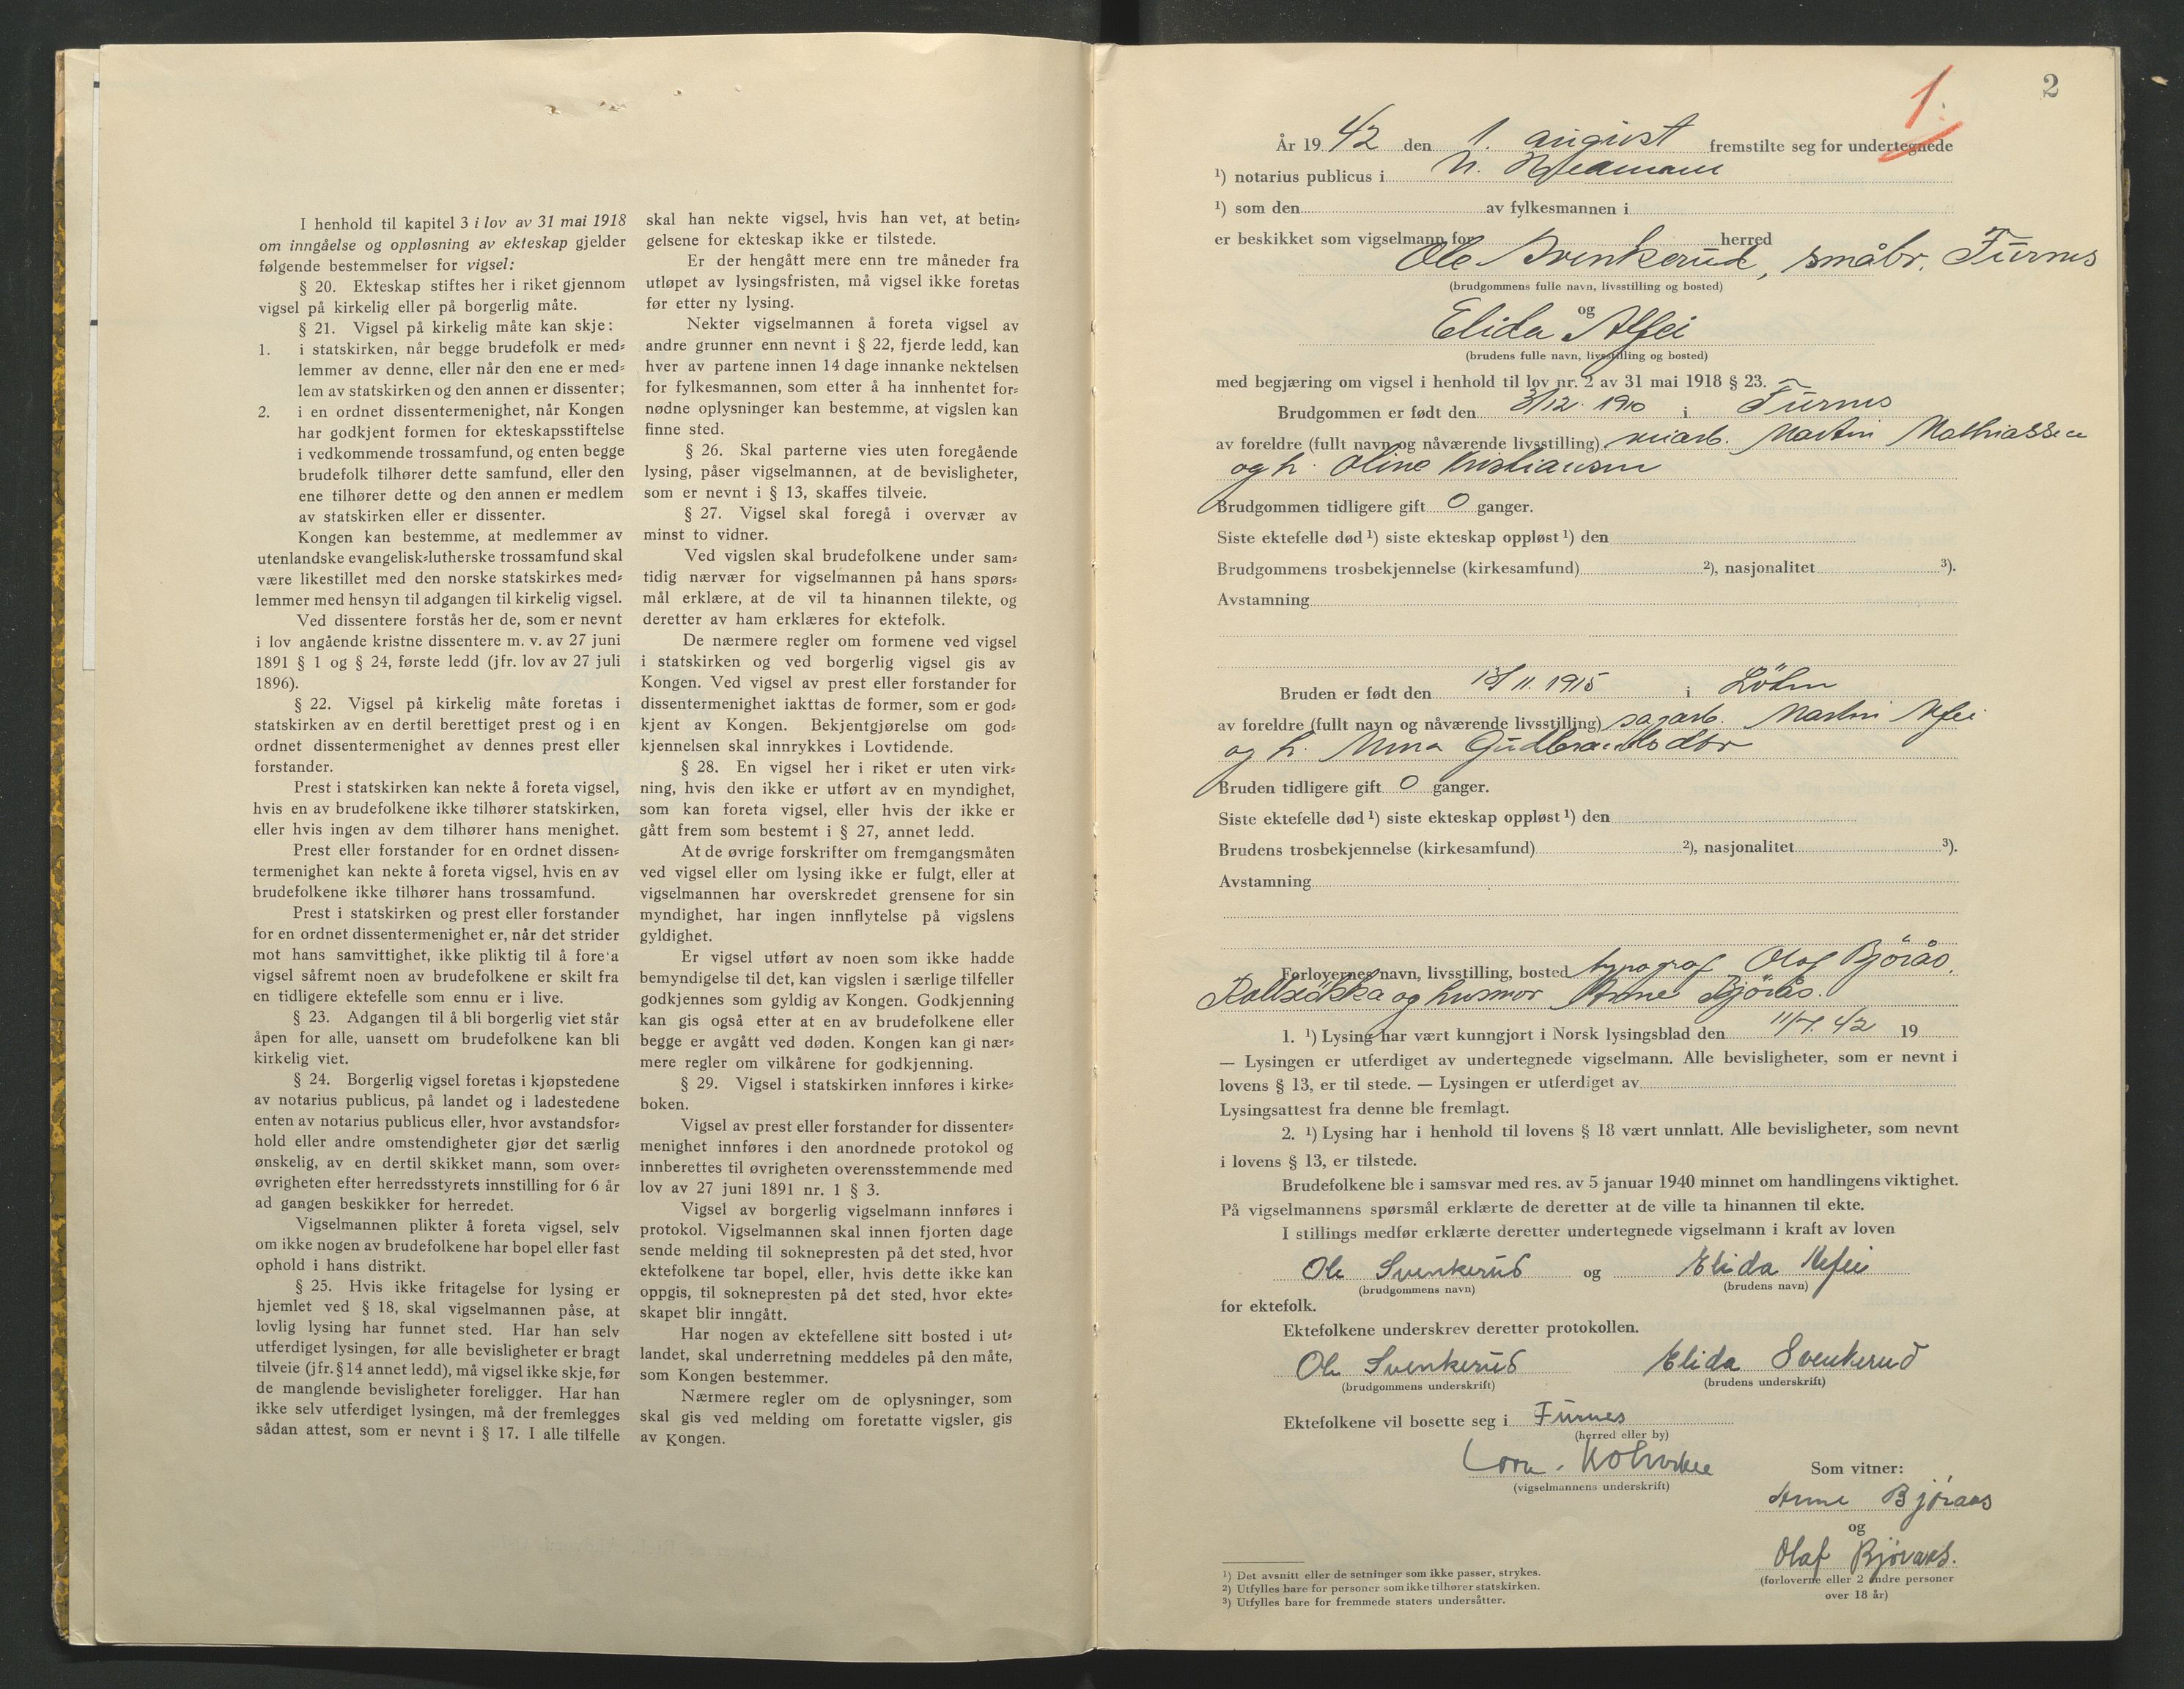 I henhold til kapitel 3 i lov av 31 mai 1918
om inngåelse og oppløsning av ekteskap gjelder
følgende bestemmelser for vigsel:
§ 20. Ekteskap stiftes her i riket gjennom
vigsel på kirkelig eller på borgerlig måte.
§ 21. Vigsel på kirkelig måte kan skje:
1. i statskirken, når begge brudefolk er med-
lemmer av denne, eller når den ene er med-
lem av statskirken og den annen er dissenter;
2. i en ordnet dissentermenighet, når Kongen
har godkjent formen for ekteskapsstiftelse
i vedkommende trossamfund, og enten begge
brudefolk tilhører dette samfund, eller den
ene tilhører dette og den annen er medlem
av statskirken eller er dissenter.
Kongen kan bestemme, at medlemmer av
utenlandske evangelisk-lutherske trossamfund skal
være likestillet med den norske statskirkes med-
lemmer med hensyn til adgangen til kirkelig vigsel.
Ved dissentere forstås her de, som er nevnt
i lov angående kristne dissentere m. v. av 27 juni
1891 § 1 og § 24, første ledd (jfr. lov av 27 juli
1896).
§ 22. Vigsel på kirkelig måte foretas i
statskirken av en dertil berettiget prest og i en
ordnet dissentermenighet av dennes prest eller
forstander.
Prest i statskirken kan nekte å foreta vigsel,
hvis en av brudefolkene ikke tilhører statskirken,
eller hvis ingen av dem tilhører hans menighet.
Prest eller forstander for en ordnet dissen-
termenighet kan nekte å foreta vigsel, hvis en av
brudefolkene ikke tilhører hans trossamfund.
Prest i statskirken og prest eller forstander
for en ordnet dissentermenighet er, når det strider
mot hans samvittighet, ikke pliktig til å fore'a
vigsel såfremt noen av brudefolkene er skilt fra
en tidligere ektefelle som ennu er i live.
§ 23. Adgangen til å bli borgerlig viet står
åpen for alle, uansett om brudefolkene kan bli
kirkelig viet.
§ 24. Borgerlig vigsel foretas i kjøpstedene
av notarius publicus, på landet og i ladestedene
enten av notarius publicus eller, hvor avstandsfor-
hold eller andre omstendigheter gjør det særlig
ønskelig, av en dertil skikket mann, som over-
øvrigheten efter herredsstyrets innstilling for 6 år
ad gangen beskikker for herredet.
Vigselmannen plikter å foreta vigsel, selv
om ikke nogen av brudefolkene har bopel eller fast
ophold i hans distrikt.
§ 25. Hvis ikke fritagelse for lysing er
hjemlet ved § 18, skal vigselmannen påse, at
lovlig lysing har funnet sted. Har han selv
utferdiget lysingen, før alle bevisligheter er bragt
tilveie (jfr. § 14 annet ledd), må vigsel ikke skje, før
de manglende bevisligheter foreligger. Har han
ikke selv utferdiget lysingen, må der fremlegges
sådan attest, som er nevnt i § 17. I alle tilfelle
skal han nekte vigsel, hvis han vet, at betin-
gelsene for ekteskap ikke er tilstede.
Er der hengått mere enn tre måneder fra
utløpet av lysingsfristen, må vigsel ikke foretas
før etter ny lysing.
Nekter vigselmannen å foreta vigsel av
andre grunner enn nevnt i § 22, fjerde ledd, kan
hver av partene innen 14 dage innanke nektelsen
for fylkesmannen, som etter å ha innhentet for-
nødne oplysninger kan bestemme, at vigslen kan
finne sted.
§ 26. Skal parterne vies uten foregående
lysing, påser vigselmannen, at de bevisligheter,
som er nevnt i § 13, skaffes tilveie.
§ 27. Vigsel skal foregå i overvær av
minst to vidner.
Ved vigslen skal brudefolkene under sam-
tidig nærvær for vigselmannen på hans spørs-
mål erklære, at de vil ta hinannen tilekte, og
deretter av ham erklæres for ektefolk.
De nærmere regler om formene ved vigsel
i statskirken og ved borgerlig vigsel gis av
Kongen. Ved vigsel av prest eller forstander for
dissentermenighet iakttas de former, som er god-
kjent av Kongen. Bekjentgjørelse om god-
kjennelsen skal innrykkes i Lovtidende.
§ 28. En vigsel her i riket er uten virk-
ning, hvis den ikke er utført av en myndighet,
som kan foreta vigsel, eller hvis der ikke er
gått frem som bestemt i § 27, annet ledd.
At de øvrige forskrifter om fremgangsmåten
ved vigsel eller om lysing ikke er fulgt, eller at
vigselmannen har overskredet grensene for sin
myndighet, har ingen innflytelse på vigslens
gyldighet.
Er vigsel utført av noen som ikke hadde
bemyndigelse til det, kan vigslen i særlige tilfeller
godkjennes som gyldig av Kongen. Godkjenning
kan gis også etter at en av brudefolkene eller
begge er avgått ved døden. Kongen kan gi nær-
mere regler om vilkårene for godkjenning.
§ 29. Vigsel i statskirken innføres i kirke-
boken.
Vigsel av prest eller forstander for dissenter-
menighet innføres i den anordnede protokol og
innberettes til øvrigheten overensstemmende med
lov av 27 juni 1891 nr. 1 § 3.
Vigsel av borgerlig vigselmann innføres i
protokol. Vigselmannen skal innen fjorten dage
sende melding til soknepresten på det sted, hvor
ektefolkene tar bopel, eller, hvis dette ikke kan
oppgis, til soknepresten på det sted, hvor ekte-
skapet blir inngått.
Har nogen av ektefellene sitt bosted i ut-
landet, skal underretning meddeles på den måte,
som Kongen bestemmer.
Nærmere regler om de oplysninger, som
skal gis ved melding om foretatte vigsler, gis
av Kongen.
1.
2
År 1942 den 1. august fremstilte seg for undertegnede
¹) notarius publicus i N. Hedmark
¹) som den av fylkesmannen i
er beskikket som vigselmann for herred
Ole Svenkerud, småbr. Furnes
(brudgommens fulle navn, livsstilling og bosted)
og
Elida Alfei
(brudens fulle navn, livsstilling og bosted)
med begjæring om vigsel i henhold til lov nr. 2 av 31 mai 1918 § 23.
Brudgommen er født den 3/12 1910 i Furnes
av foreldre (fullt navn og nåværende livsstilling) Martin Mathiassen
og h. Oline Kristiansen
Brudgommen tidligere gift 0 ganger.
Siste ektefelle død ¹) siste ekteskap oppløst ¹) den
Brudgommens trosbekjennelse (kirkesamfund) ²), nasjonalitet ³).
Avstamning
Bruden er født den 11. 1915 i Löten
av foreldre (fullt navn og nåværende livsstilling) sagarb. Martin Alfei
og h. Anna Gudbrandsdtr
Bruden tidligere gift 0 ganger.
Siste ektefelle død ¹) siste ekteskap oppløst ¹) den
Brudens trosbekjennelse (kirkesamfund) ²), nasjonalitet ³).
Avstamning
Forlovernes navn, livsstilling, bosted typograf Olaf Björaas,
og husmor Anne Björaas.
1. ¹) Lysing har vært kunngjort i Norsk lysingsblad den 11/7. 42 19
— Lysingen er utferdiget av undertegnede vigselmann. Alle bevisligheter, som er nevnt i
lovens § 13, er til stede. — Lysingen er utferdiget av
Lysingsattest fra denne ble fremlagt.
2. ¹) Lysing har i henhold til lovens § 18 vært unnlatt. Alle bevisligheter, som nevnt
i lovens § 13, er tilstede.
Brudefolkene ble i samsvar med res. av 5 januar 1940 minnet om handlingens viktighet.
På vigselmannens spørsmål erklærte de deretter at de ville ta hinannen til ekte.
I stillings medfør erklærte deretter undertegnede vigselmann i kraft av loven
Ole Svenkerud og Elida Alfei
(brudgommens navn) (brudens navn)
for ektefolk.
Ektefolkene underskrev deretter protokollen.
Ole Svenkerud Elida Svenkerud
(brudgommens underskrift) (brudens underskrift)
Ektefolkene vil bosette seg i Furnes
(herred eller by)
(vigselmannens underskrift)
Som vitner:
Anne Bjøraas
og
Olaf Bjøraas.
(forloverne eller 2 andre personer
over 18 år)
¹) Det avsnitt eller de setninger som ikke passer, strykes.
²) Utfylles bare for personer som ikke tilhører statskirken.
³) Utfylles bare for fremmede staters undersåtter.